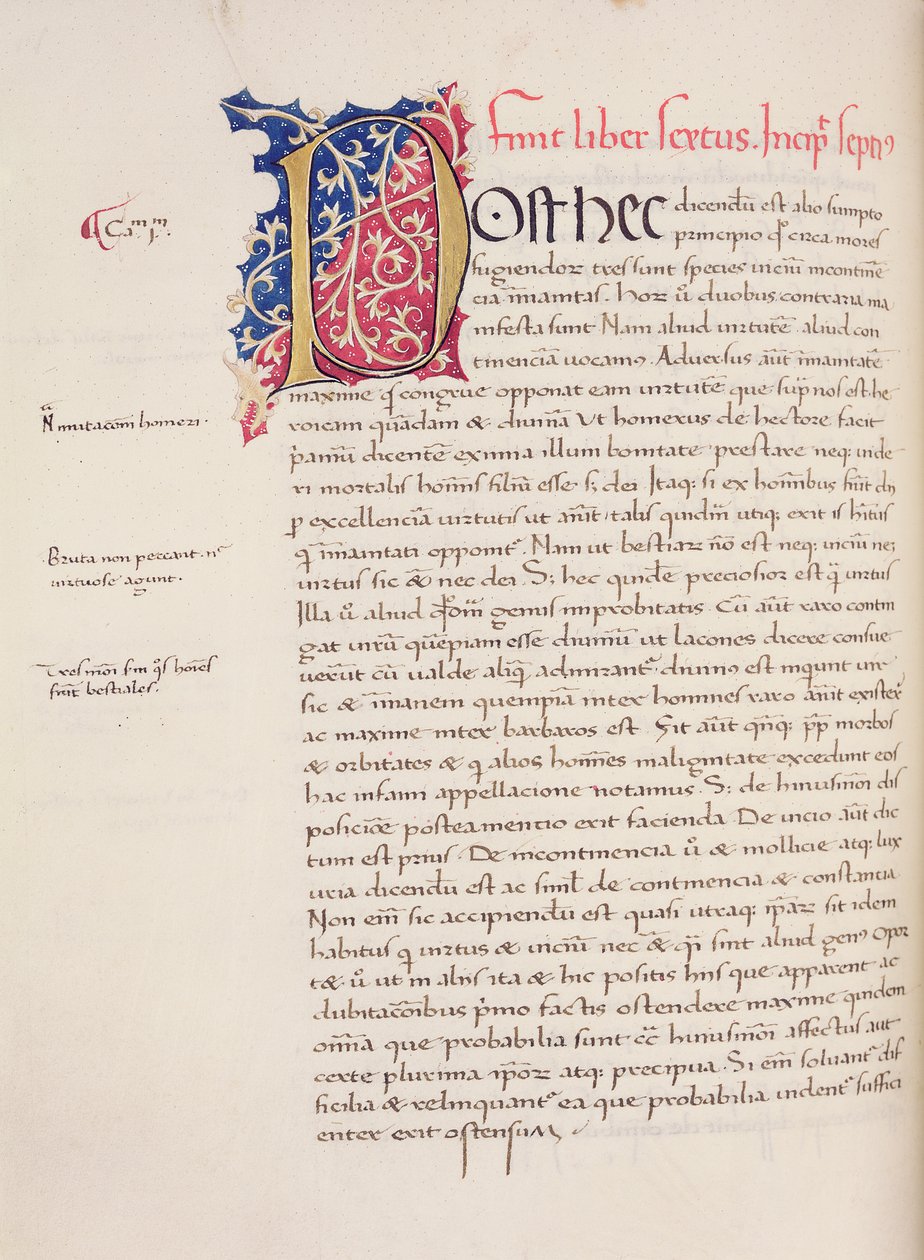 Finit liber sextus. Incip̄t septiꝰ
POst hec dicendū est alio sumpto
principio qͦ circa mores
fugiendoꝝ tres sunt species viciū incontinē
cia īmanitas. Hoꝝ ṽo duobus contraria ma
nifesta sunt Nam aliud virtutē aliud con
tinenciā vocamꝰ. Adversus aūt īmanitatē
maxime congrue opponat eam virtutē que supͣ nos est he
roicam quādam & divinā Ut homerus de hectore facit
pͥamū dicentē eximia illum bonitate prestare neqꝫ vide
ri mortalis hoīnis filiū esse sꝫ dei Itaqꝫ si ex homībus fiūt dii
ꝑ excellenciā virtutis ut aiūt talis quidm̄ utiqꝫ erit is hītus
qͥ īmanitati opponitᷣ. Nam ut bestiaꝝ nō est neqꝫ viciū neꝫ
virtus sic & nec dei. Sꝫ hec quidē preciosior est qͣ virtus
Illa ṽo aliud genus improbitatis. Cū aūt raro contin
gat virū quēpiam esse divinū ut lacones dicere consue
verūt cū valde aliqͣ admirantᷣ divinꝰ est inquunt vir
sic & īmanem quempiā inter homines raro aiūt existeꝛ
ac maxime inter barbaros est. Fit aūt qn̄qꝫ pp̄ morbos
& orbitates & qͥ alios homīes malignitate excedunt eos
hac infami appellacione notamus. Sꝫ de hiusmōi dis
posiciōe postea mentio erit facienda. De vicio aūt dic
tum est prius. De incontinencia ṽo & mollicie atqꝫ lux
uria dicendū est ac simł de continencia & constantia
Non em̄ sic accipiendū est quasi utraqꝫ ip̄aꝝ sit idem
habitus qͥ virtus & viciū nec & qͣsi sint aliud genꝰ Opor
t& ṽo ut in aliis ita & hic positis hiis que apparent ac
dubitacōibus pͥmo factis ostendere maxime quidem
omnīa que probabilia sunt cc̄ hiusmōi affectus aut
certe plurima ip̄oꝝ atqꝫ precipua. Si em̄ solvantᷣ dif
ficilia & relinquantᷣ ea que probabilia videntᷣ suffici
enter erit ostensum
Caᵐ jᵐ.
mutacōm homeri.
Bruta non peccant nᶜ
virtuose agunt.
Tres mōi fm̄ qͦs hoīes
fiūt bestiales.